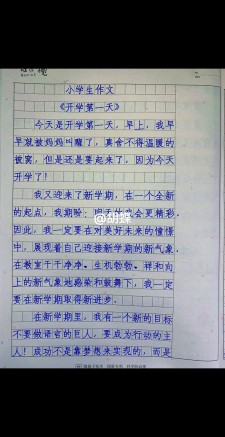 小学生作文
《开学第一天》
今天是开学第一天，早上，我早
早就被妈妈叫醒了，真舍不得温暖的
被窝，但是还是要起来了，因为今天
开学了！
我又迎来了新学期，在一个全新
的起点，我期盼：明天的会更精彩。
因此，我一定要在对美好未来的憧憬
中，展现着自己迎接新学期的新气象。
在教室干干净净、生机勃勃、祥和向
上的新气象地感染和鼓舞下，我一定
要在新学期取得新进步。
在新学期里，我有一个新的目标
不要做语言的巨人，要成为行动的主
人！成功不是靠梦想来实现的，而是
@胡蝶